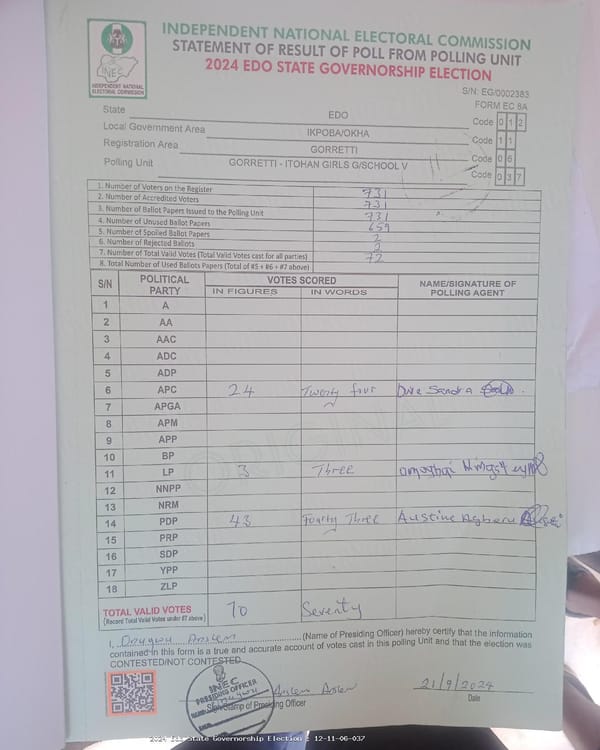 INDEPENDENT NATIONAL ELECTORAL COMMISSION
STATEMENT OF RESULT OF POLL FROM POLLING UNIT
2024 EDO STATE GOVERNORSHIP ELECTION
INEC
INDEPENDENT NATIONAL
ELECTORAL COMMISSION
S/N: EG/0002383
FORM EC 8A
State EDO Code 0 1 2
Local Government Area IKPOBA/OKHA Code 1 1
Registration Area GORRETTI Code 0 6
Polling Unit GORRETTI - ITOHAN GIRLS G/SCHOOL V Code 0 3 7
1. Number of Voters on the Register 731
2. Number of Accredited Voters 731
3. Number of Ballot Papers Issued to the Polling Unit 731
4. Number of Unused Ballot Papers 659
5. Number of Spoiled Ballot Papers
6. Number of Rejected Ballots
7. Number of Total Valid Votes (Total Valid Votes cast for all parties) 72
8. Total Number of Used Ballots Papers (Total of #5 + #6 + #7 above)
S/N POLITICAL PARTY VOTES SCORED NAME/SIGNATURE OF POLLING AGENT
IN FIGURES IN WORDS
1 A
2 AA
3 AAC
4 ADC
5 ADP
6 APC 24 Twenty four Sandra
7 APGA
8 APM
9 APP
10 BP
11 LP 3 Three
12 NNPP
13 NRM
14 PDP 43 Fourty Three Austine
15 PRP
16 SDP
17 YPP
18 ZLP
TOTAL VALID VOTES 70 Seventy
(Record Total Valid Votes under #7 above)
I, Onugwu Anslem (Name of Presiding Officer) hereby certify that the information
contained in this form is a true and accurate account of votes cast in this polling Unit and that the election was
CONTESTED/NOT CONTESTED
INEC
PRESIDING OFFICER
Anslem
21/9/2024
Stamp of Presiding Officer
Date
2024 Edo State Governorship Election : 12-11-06-037